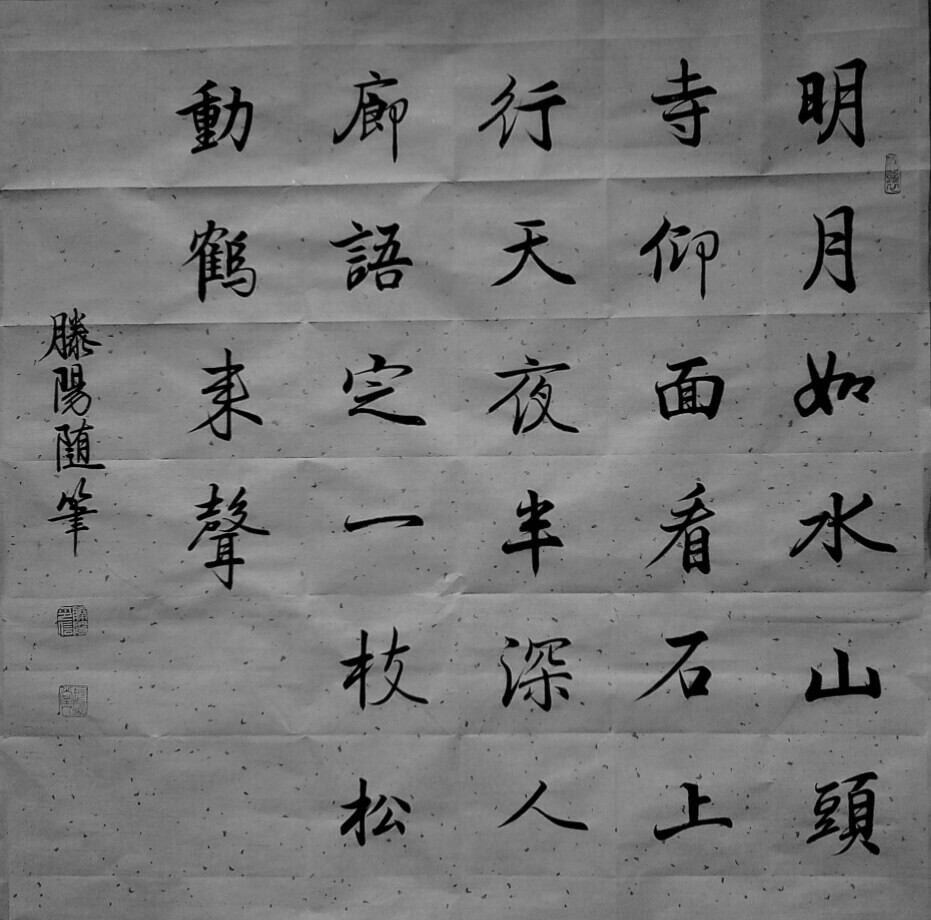 明月如水山頭
寺仰面看石上
行天夜半深人
廊語定一枝松
動鶴来聲
滕陽随筆